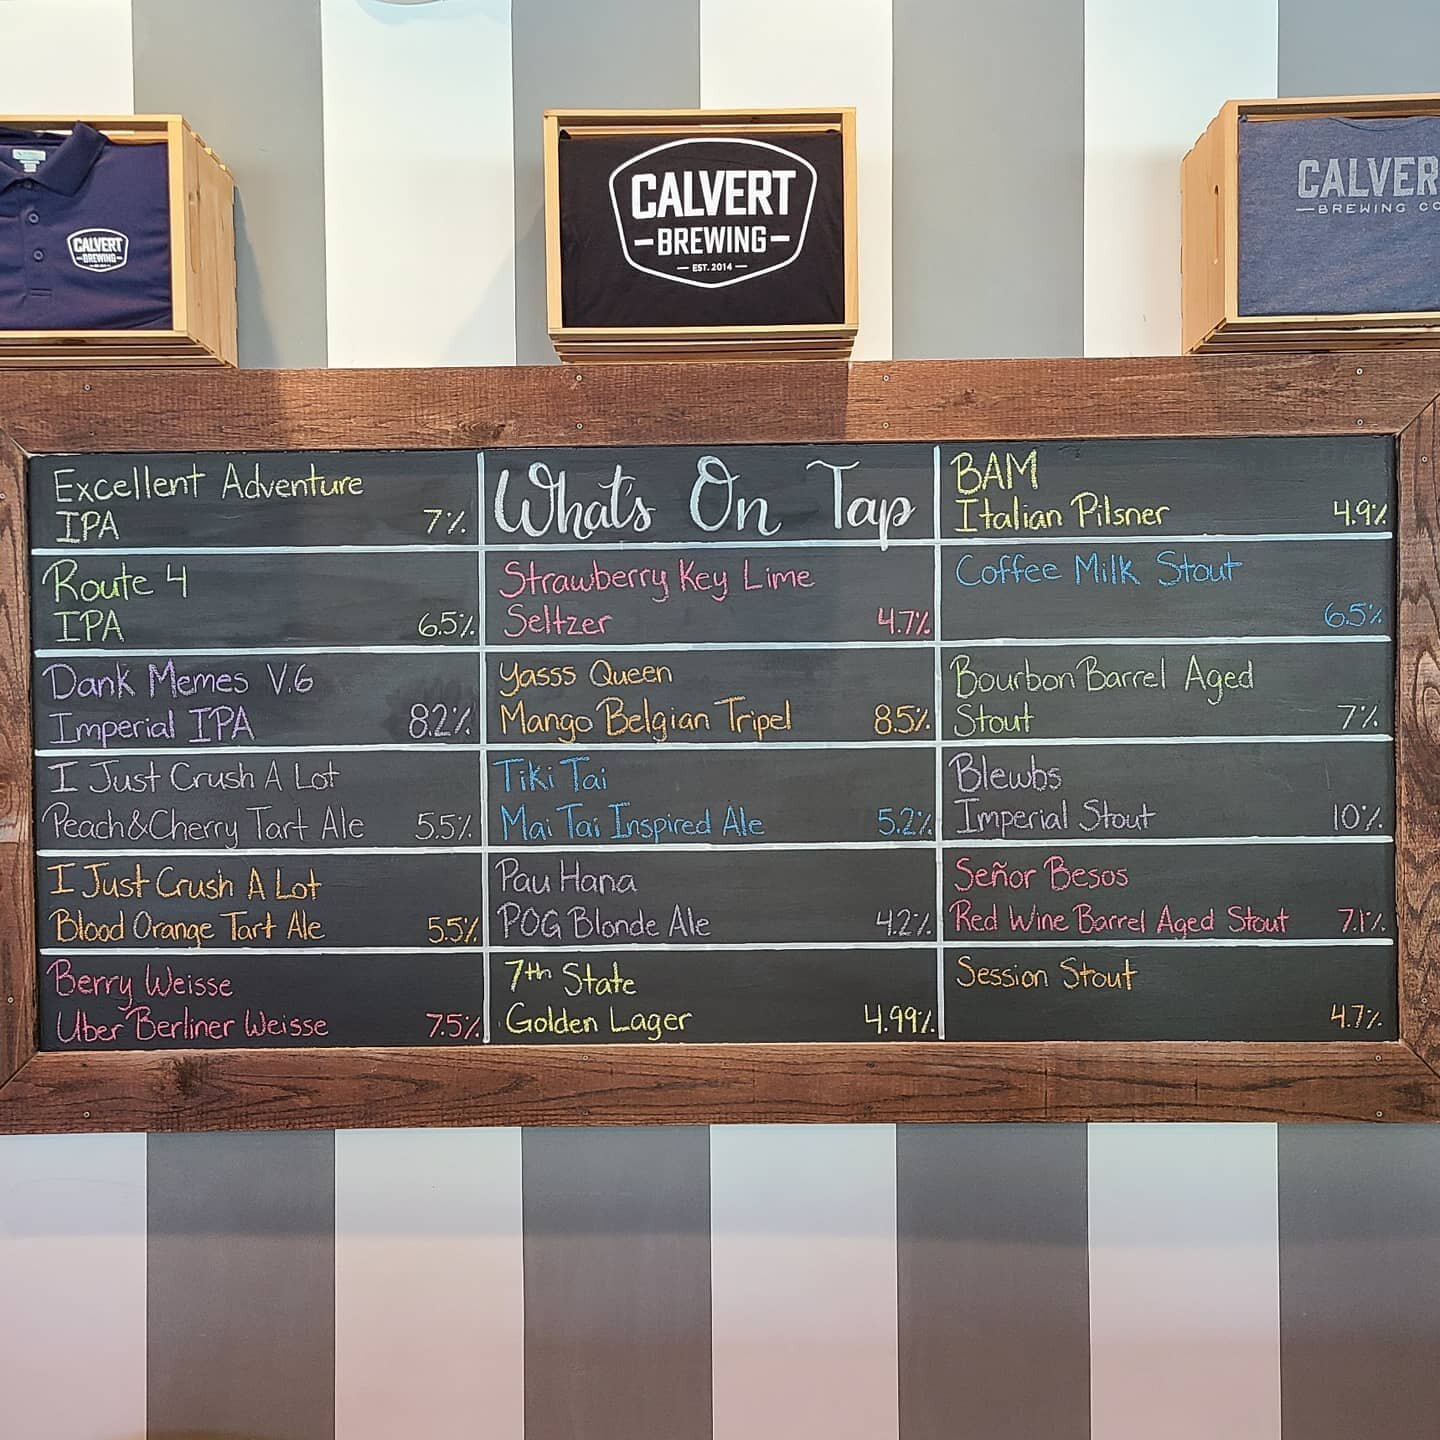 CALVERT
BREWING
CALVERT
BREWING
EST. 2014
CALVER
BREWING CO
Excellent Adventure
IPA 7%
Route 4
IPA 6.5%
Dank Memes V.6
Imperial IPA 8.2%
I Just Crush A Lot
Peach&Cherry Tart Ale 5.5%
I Just Crush A Lot
Blood Orange Tart Ale 5.5%
Berry Weisse
Uber Berliner Weisse 7.5%
What's On Tap
Strawberry Key Lime
Seltzer 4.7%
Yasss Queen
Mango Belgian Tripel 8.5%
Tiki Tai
Mai Tai Inspired Ale 5.2%
Pau Hana
POG Blonde Ale 4.2%
7th State
Golden Lager 4.99%
BAM
Italian Pilsner 4.9%
Coffee Milk Stout
6.5%
Bourbon Barrel Aged
Stout 7%
Blewbs
Imperial Stout 10%
Señor Besos
Red Wine Barrel Aged Stout 7.1%
Session Stout
4.7%